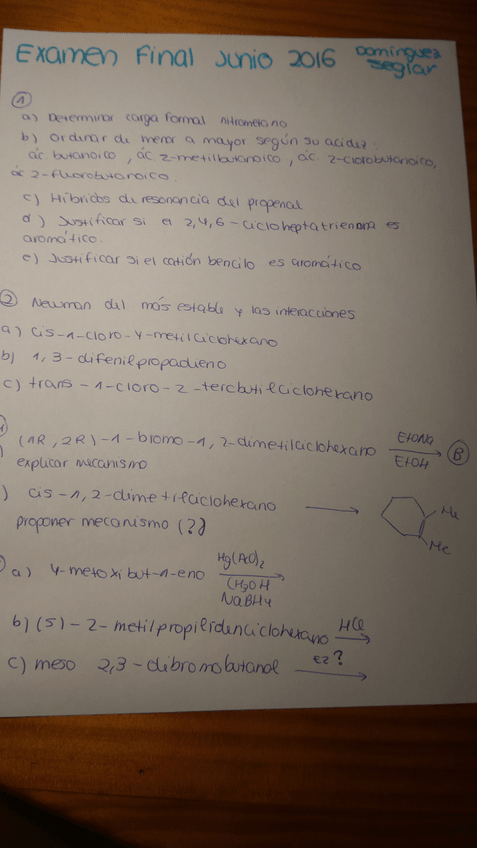 Examen Final Junio 2016 Domínguez
Seglar
①
a) Determinar carga formal nitrometano
b) Ordenar de menor a mayor según su acidez:
ác. butanoico, ác. 2-metilbutanoico, ác. 2-clorobutanoico,
ác 2-fluorobutanoico.
c) Híbridos de resonancia del propenal
d) Justificar si el 2,4,6-cicloheptatrienona es
aromático.
e) Justificar si el catión bencilo es aromático
② Newman del más estable y las interacciones
a) cis-1-cloro-4-metilciclohexano
b) 1,3-difenilpropadieno
c) trans-1-cloro-2-tercbutilciclohexano
(1R, 2R)-1-bromo-1,2-dimetilciclohexano EtONa
EtOH
B
explicar mecanismo
) cis-1,2-dimetilciclohexano
Me
Me
proponer mecanismo (?)
a) 4-metoxibut-1-eno Hg(AcO)2
CH3OH
NaBH4
b) (S)-2-metilpropilidenciclohexano HCl
c) meso 2,3-dibromobutanol E2?